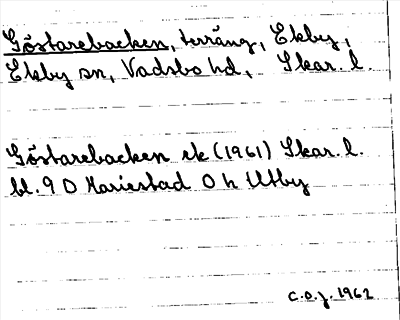 Göstarebacken, terräng, Ekby,
Ekby sn, Vadsbo hd, Skar. l.
Göstarebacken ek (1961) Skar. l.
bl. 9 D Mariestad 0 h Utby
C.O.J. 1962